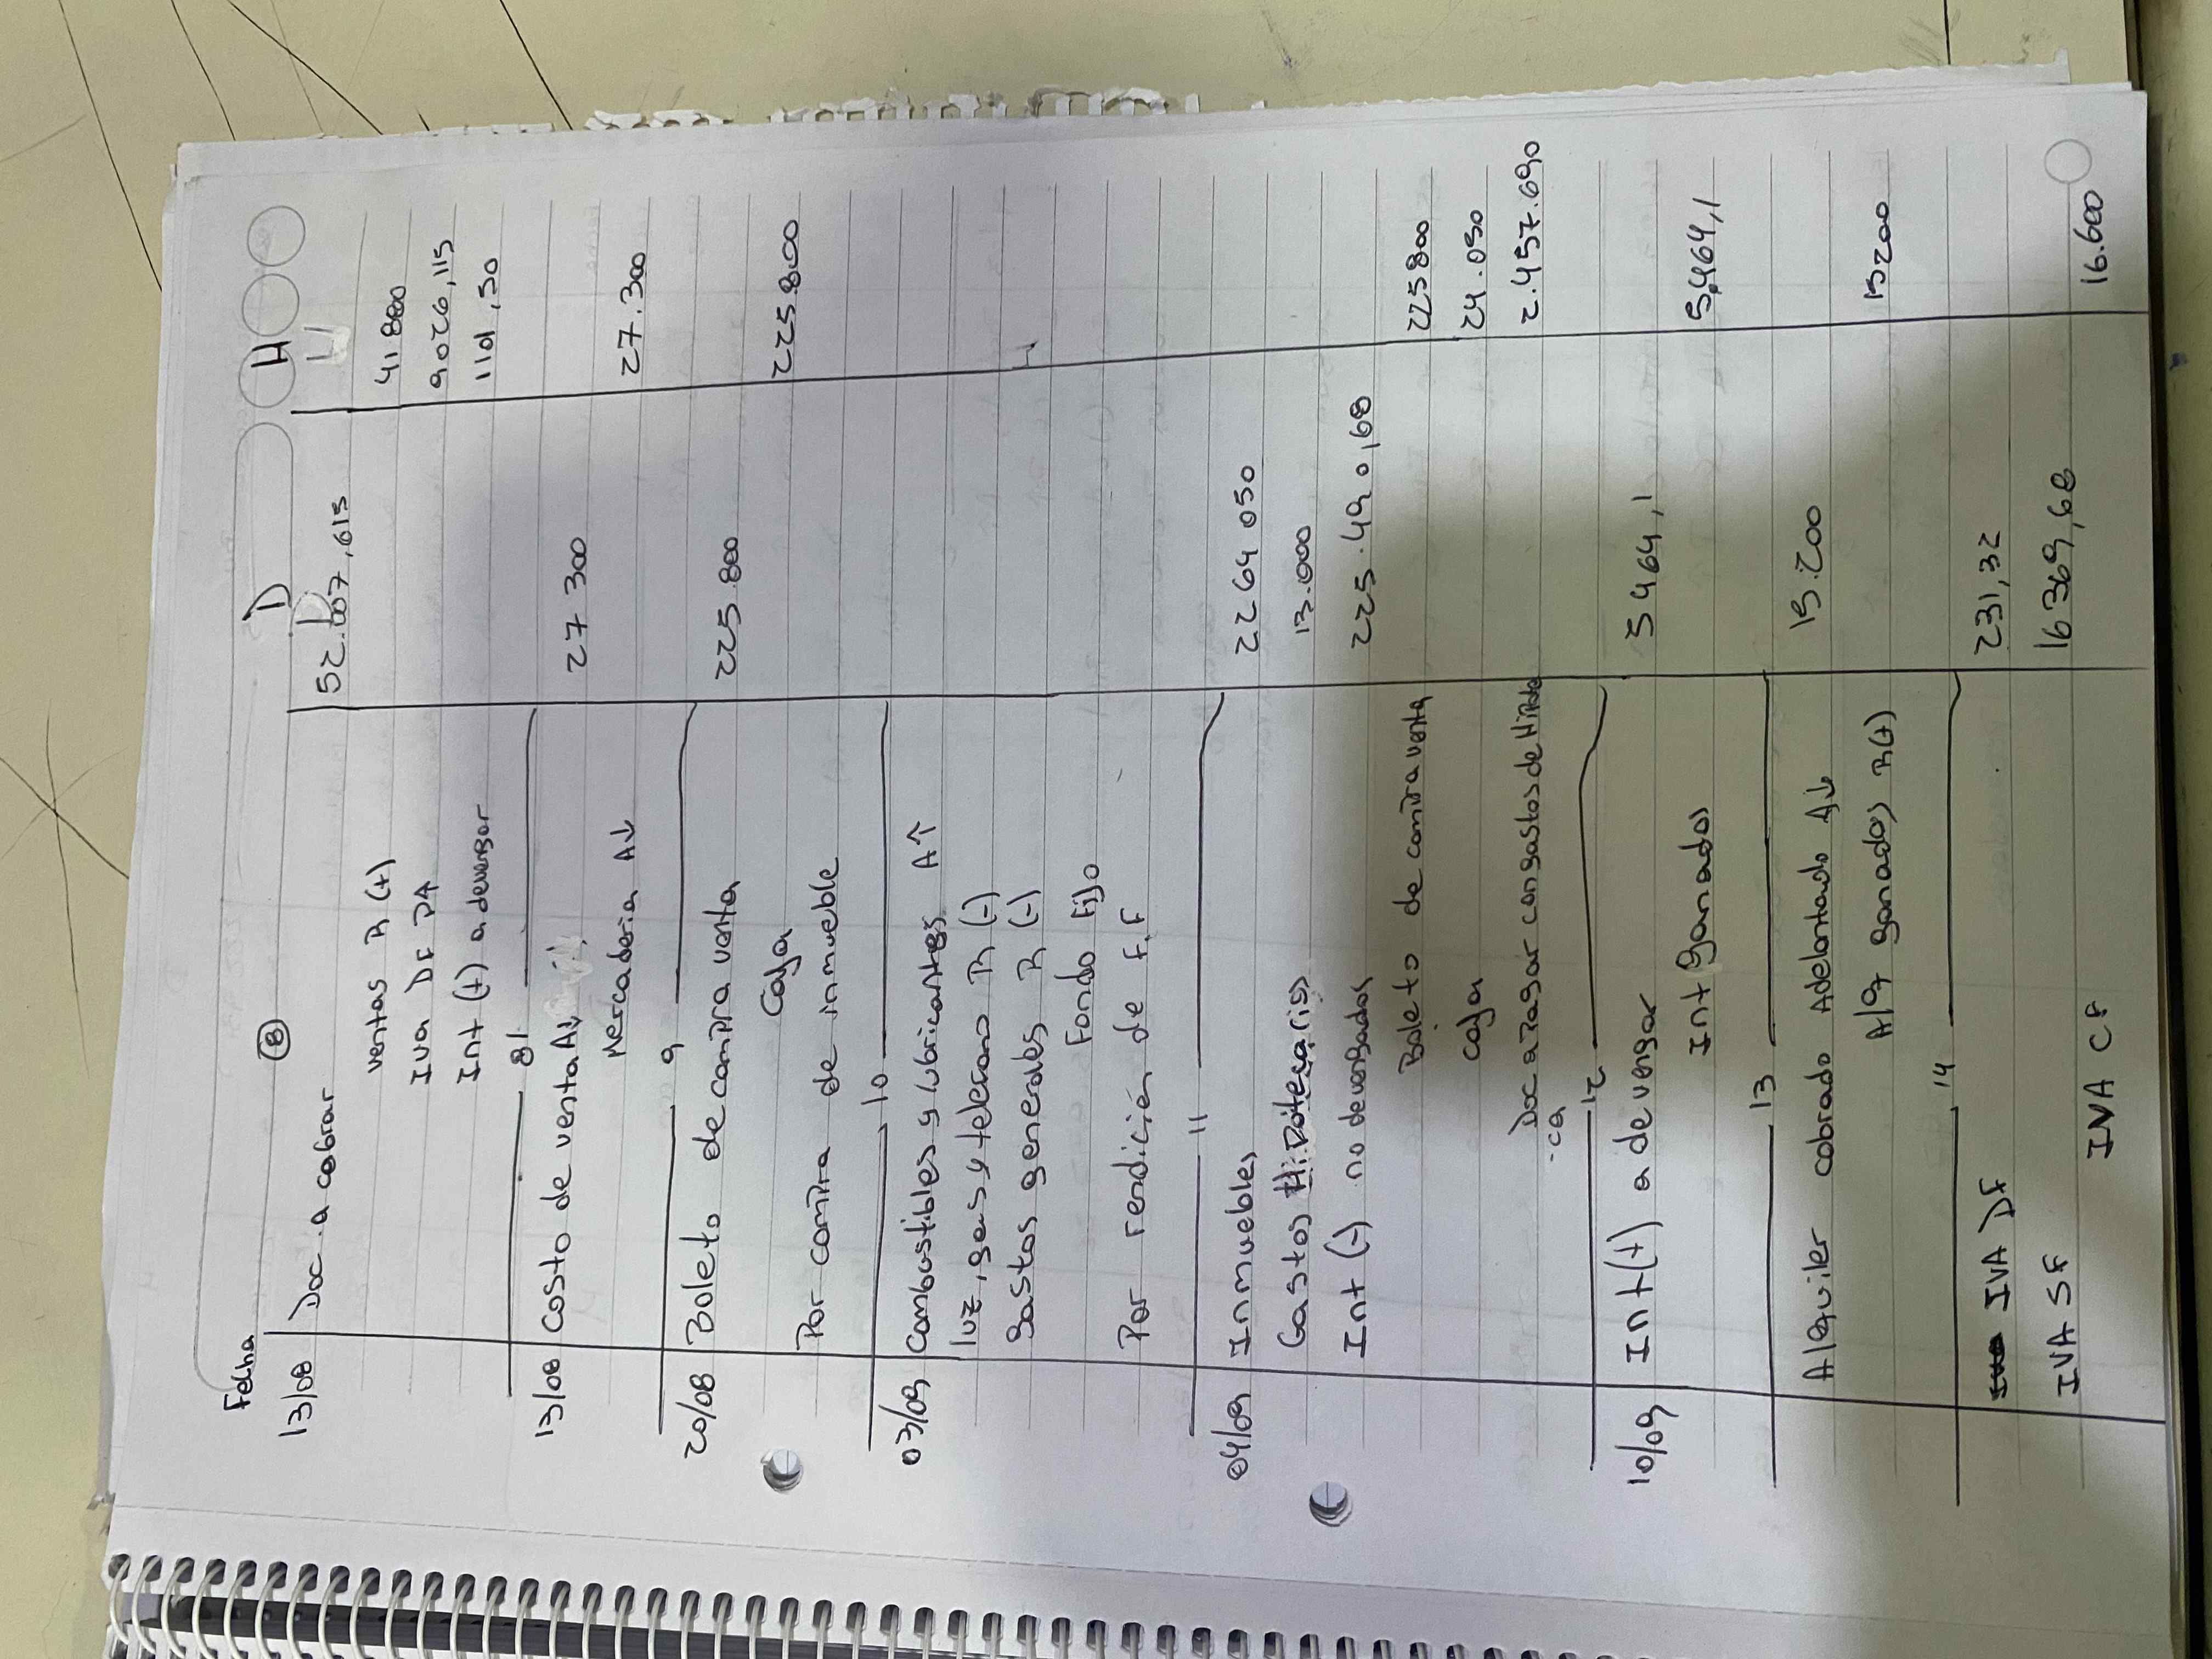 Fecha D H
13/08 Doc. a cobrar 52.007,615
ventas R(+) 41800
IVA DF P↑ 9.026,115
Int (+) a devengar 1101,50
8'
13/08 Costo de venta A↓ 27 300
Mercaderia A↓ 27.300
9
20/08 Boleto de compra venta 225.800
Caja 225.800
Por compra de inmueble
10
03/09 Combustibles y lubricantes A↑
luz, gas y telefono R(-)
gastos generales R(-)
Fondo Fijo
Por rendición de F.F
11
04/09 Inmuebles 2264 050
Gastos Hipotecarios 13.000
Int (-) no devengados 225.490,168
Boleto de compra venta 225800
Caja 24.050
Doc a pagar con gastos de Hipote 2.457.690
-ca
12
10/09 Int (+) a devengar 5464,1
Int ganados 5.464,1
13
Alquiler cobrado Adelantado A↓ 15.200
Alq ganados R(+) 15200
14
IVA DF 231,32
IVA SF 16369,68
IVA CF 16.600